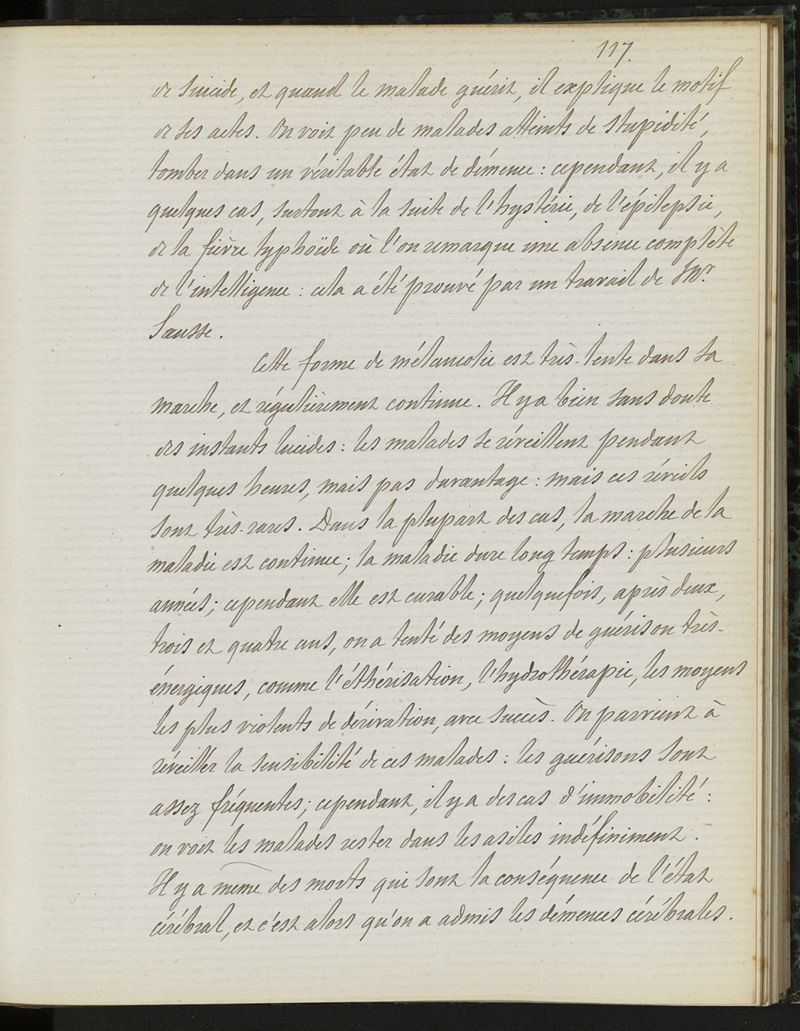 117.
de suicide, et quand le malade guérit, il explique le motif
de ses actes. On voit peu de malades atteints de stupidité,
tomber dans un véritable état de démence : cependant, il y a
quelques cas, surtout à la suite de l'hystérie, de l'épilepsie,
de la fièvre typhoïde où l'on remarque une absence complète
de l'intelligence : cela a été prouvé par un travail de Mr.
Sausse.
Cette forme de mélancolie est très-lente dans sa
marche, et régulièrement continue. Il y a bien sans doute
des instants lucides : les malades se réveillent pendant
quelques heures, mais pas davantage : mais ces réveils
sont très-rares. Dans la plupart des cas, la marche de la
maladie est continue ; la maladie dure long temps : plusieurs
années ; cependant elle est curable ; quelquefois, après deux,
trois et quatre ans, on a tenté des moyens de guérison très-
énergiques, comme l'éthérisation, l'hydrothérapie, les moyens
les plus violents de dérivation, avec succès. On parvient à
réveiller la sensibilité de ces malades : les guérisons sont
assez fréquentes ; cependant, il y a des cas d'immobilité :
on voit les malades rester dans les asiles indéfiniment.
Il y a même des morts qui sont la conséquence de l'état
cérébral, et c'est alors qu'on a admis les démences cérébrales.